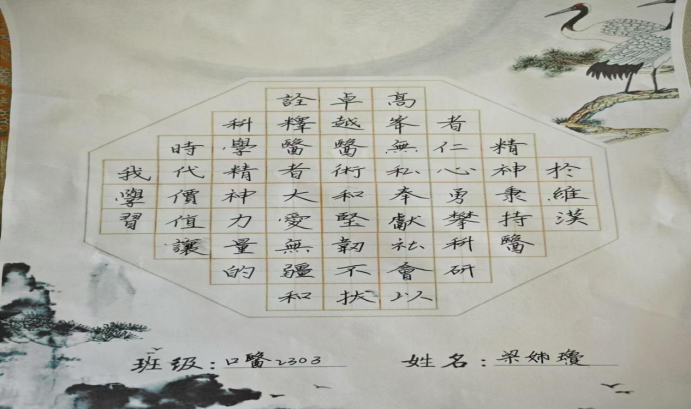 於維漢
精神秉持醫
者仁心勇攀科研
高峯無私奉獻社會以
卓越醫術和堅韌不拔
詮釋醫者大愛無疆和
科學精神力量的
時代價值讓
我學習
班级:口醫2303 姓名:梁姊瓊